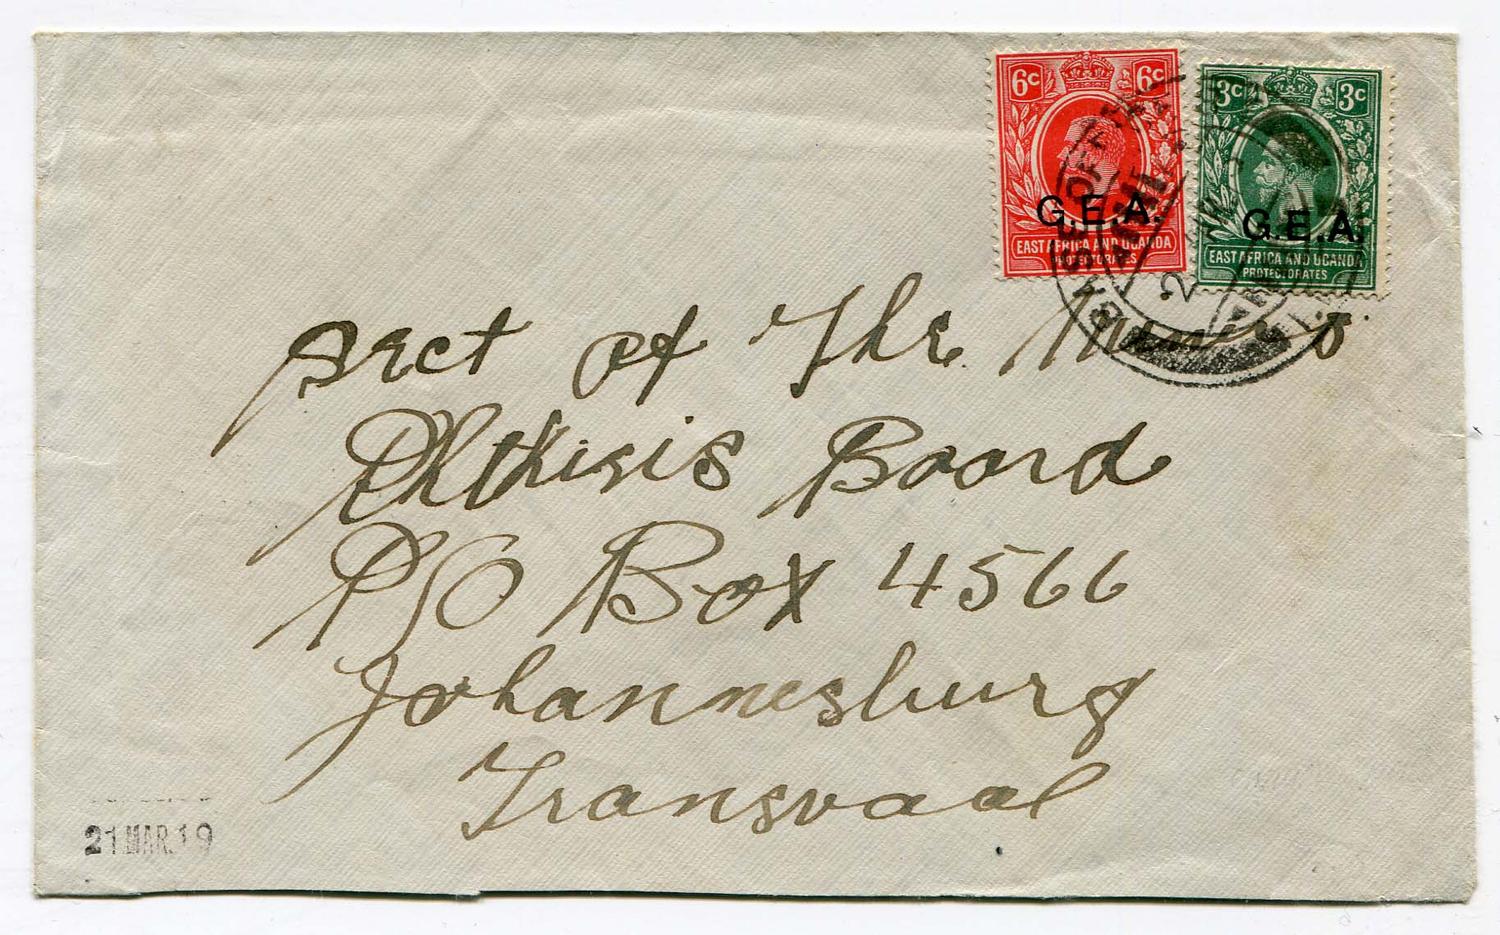 6c 6c
G.E.A.
EAST AFRICA AND UGANDA
PROTECTORATES
3c 3c
G.E.A.
EAST AFRICA AND UGANDA
PROTECTORATES
BASE OFFICE
Sect of The Miners
Phthisis Board
PO Box 4566
Johannesburg
Transvaal
21 MAR.19